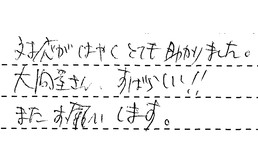 対応がはやくとても助かりました。
大同屋さん、すばらしい!!
またお願いします。